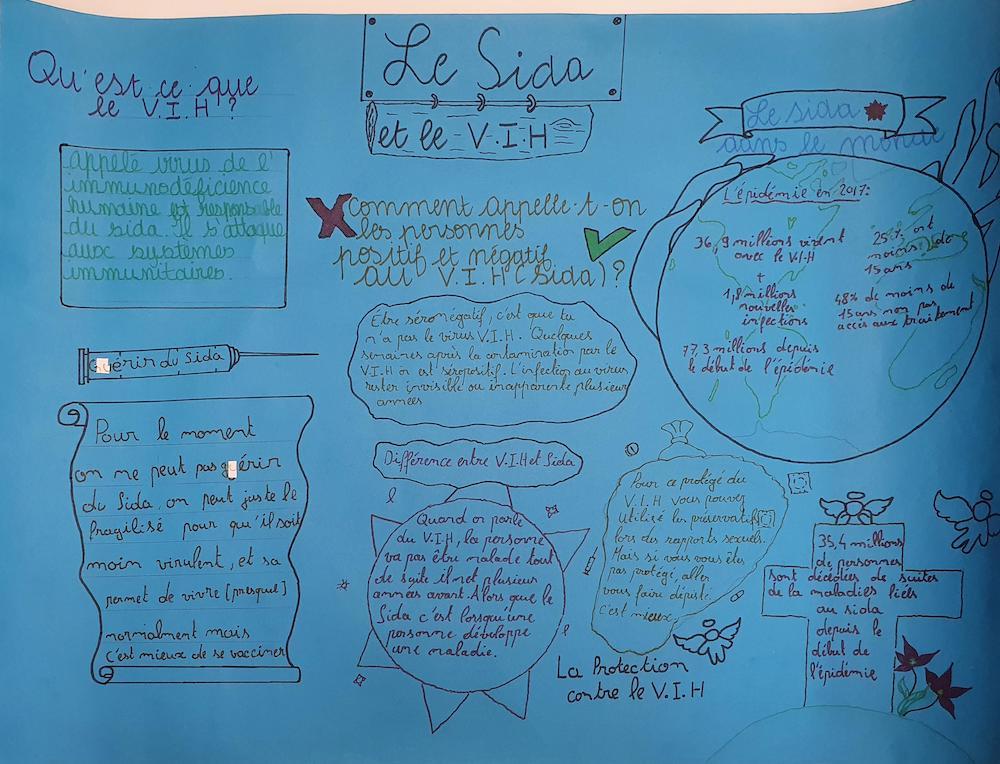 Le Sida
et le V.I.H
Qu'est ce que
le V.I.H ?
appelé virus de l'
immunodéficience
humaine est responsable
du sida. Il s'attaque
aux systèmes
immunitaires.
Guérir du Sida
Pour le moment
on ne peut pas guérir
du Sida, on peut juste le
fragilisé pour qu'il soit
moin virulent, et sa
permet de vivre [presque]
normalment mais
c'est mieux de se vacciner
Comment appelle-t-on
les personnes
positif et négatif
au V.I.H (Sida) ?
Etre séronégatif, c'est que tu
n'a pas le virus V.I.H. Quelques
semaines après la contamination par le
V.I.H on est séropositif. L'infection au virus
rester invisible ou inapparente plusieur
années
Différence entre V.I.H et Sida
Quand on parle
du V.I.H, la personne
va pas être malade tout
de suite il met plusieur
années avant. Alors que le
Sida c'est lorsqu'une
personne développe
une maladie.
Pour ce protégé du
V.I.H vous pouvez
utilisé les préservatif
lors des rapports sexuels.
Mais si vous vous êtes
pas protégé, aller
vous faire dépisté.
C'est mieux
La Protection
contre le V.I.H
Le sida
dans le monde
L'épidémie en 2017:
36,9 millions vivent
avec le V.I.H
+
1,8 millions
nouvelles
infections
77,3 millions depuis
le début de l'épidémie
25% ont
moins de
15 ans
48% de moins de
15 ans non pas
accès aux traitement
35,4 millions
de personnes
sont décédées de suites
de la maladies liées
au sida
depuis le
début de
l'épidémie